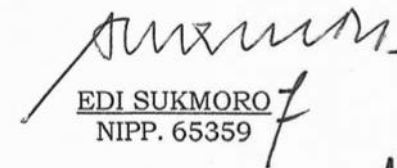 EDI SUKMORO
NIPP. 65359